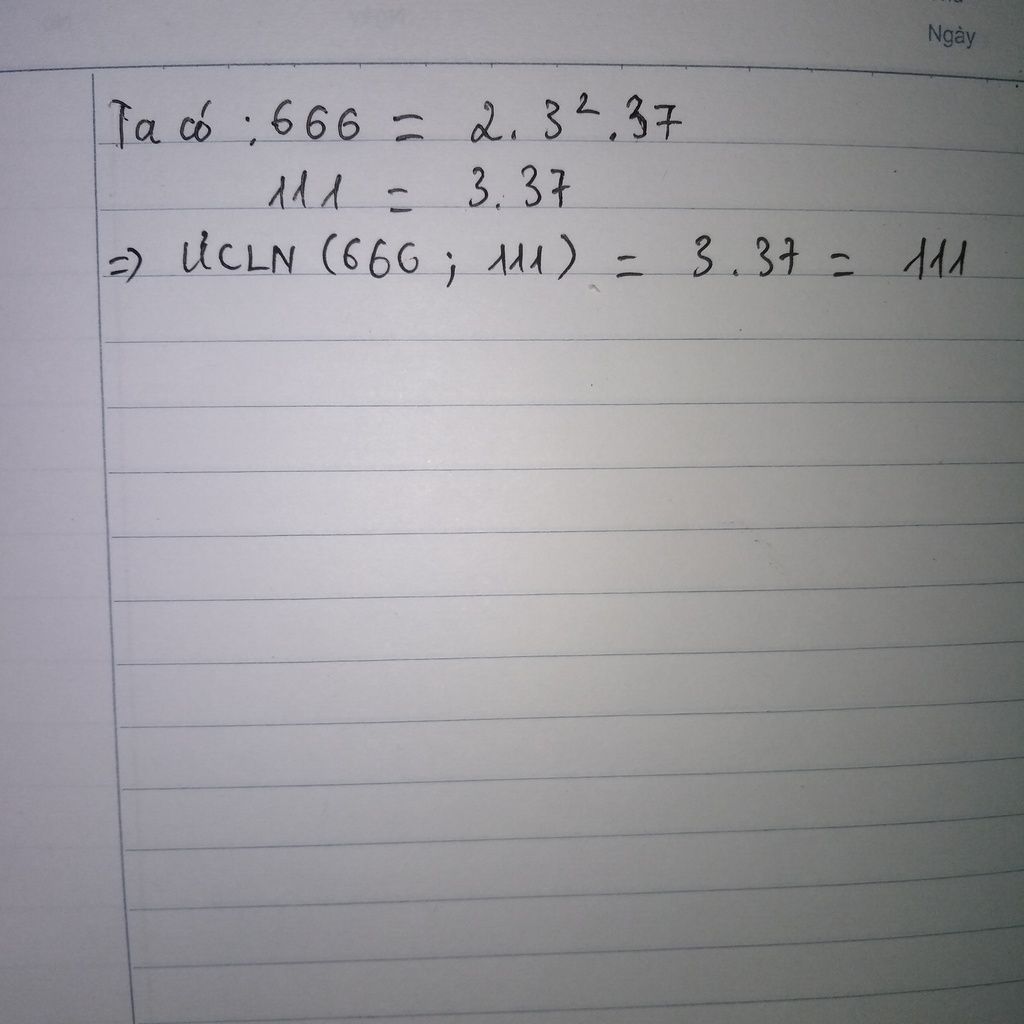 Ngày
Ta có : 666 = 2.3².37
111 = 3.37
=> ƯCLN (666 ; 111) = 3.37 = 111